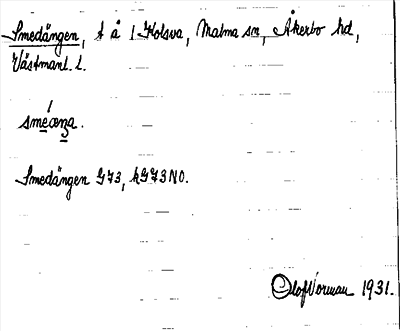 Smedängen, t å 1 Kolsva, Malma sn, Åkerbo hd,
Västmanl. l.
smeæŋa.
Smedängen G73, kG73NO.
Olof Vorman 1931.